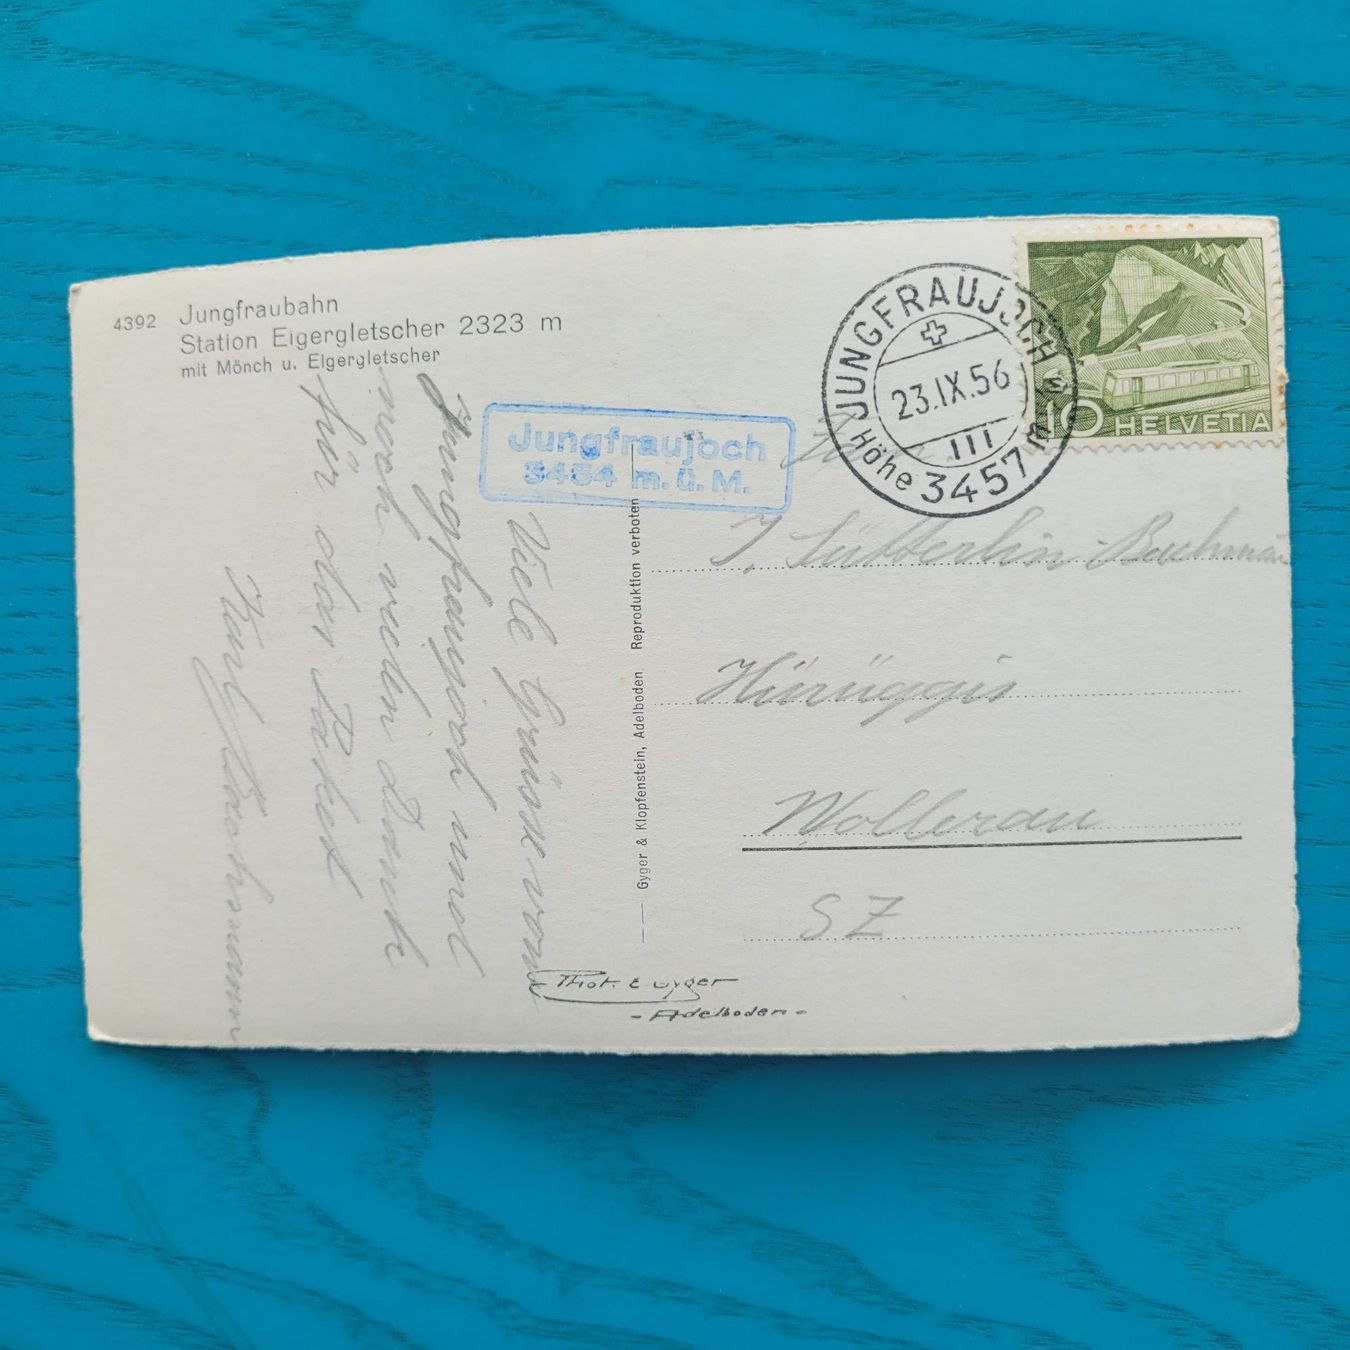 4392 Jungfraubahn
Station Eigergletscher 2323 m
mit Mönch u. Eigergletscher
Jungfraujoch
3454 m.ü.M.
Viele Grüsse vom
Jungfraujoch und
noch vielen Dank
für das Paket
Bachmann
Gyger & Klopfenstein, Adelboden Reproduktion verboten
Phot. E Gyger
- Adelboden -
JUNGFRAUJOCH
23.IX.56
III
Höhe 3457 m
10 HELVETIA
J. Sütterlin-Bachmann
Wollerau
SZ